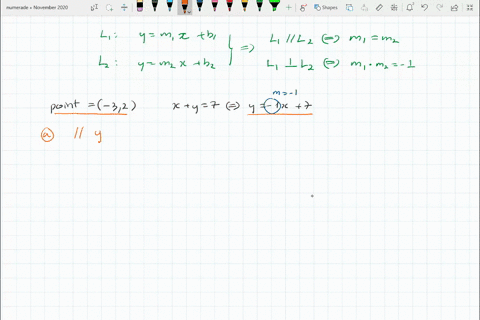 numerade > November 2020 Shapes
L₁: y = m₁x + b₁
L₂: y = m₂x + b₂
⟹ L₁ // L₂ ⟺ m₁ = m₂
L₁ ⊥ L₂ ⟺ m₁·m₂ = -1
m = -1
point = (-3,2) x + y = 7 ⟺ y = -1x + 7
ⓐ // y